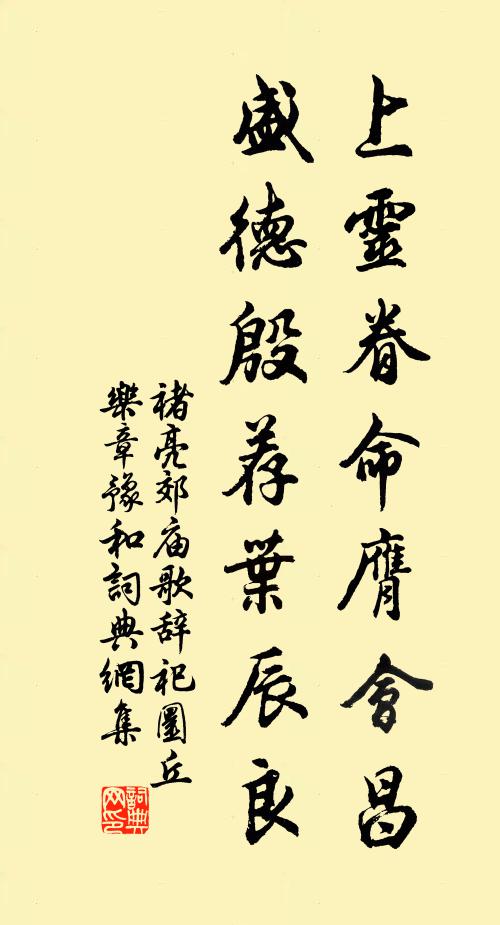 上靈眷命膺會昌
盛德殷荐葉辰良
褚亮郊庙歌辞祀圜丘
樂章豫和詞典網集
詞典网印